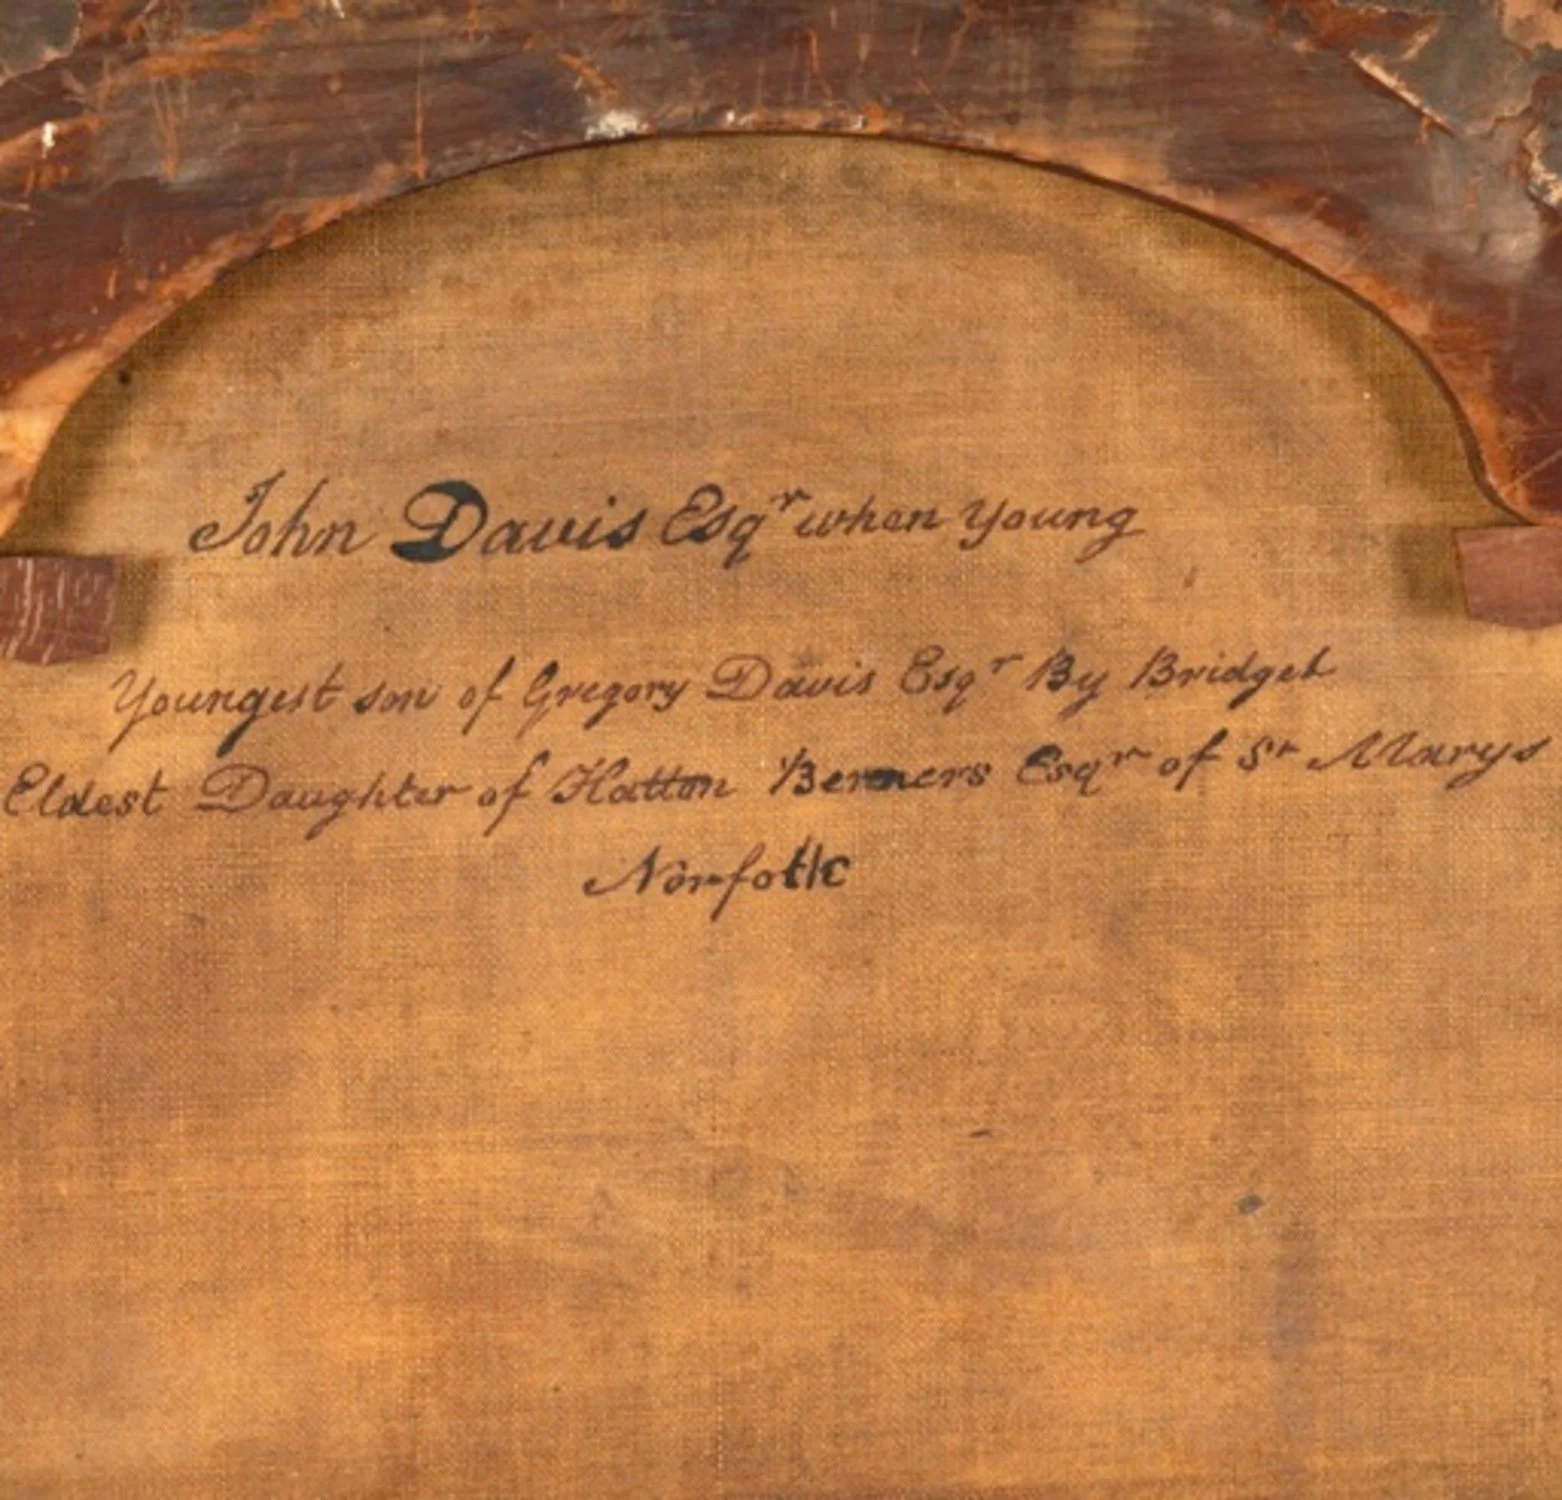 John Davis Esqr when Young
Youngest son of Gregory Davis Esqr By Bridget
Eldest Daughter of Hatton Berners Esqr of St Marys
Norfolk